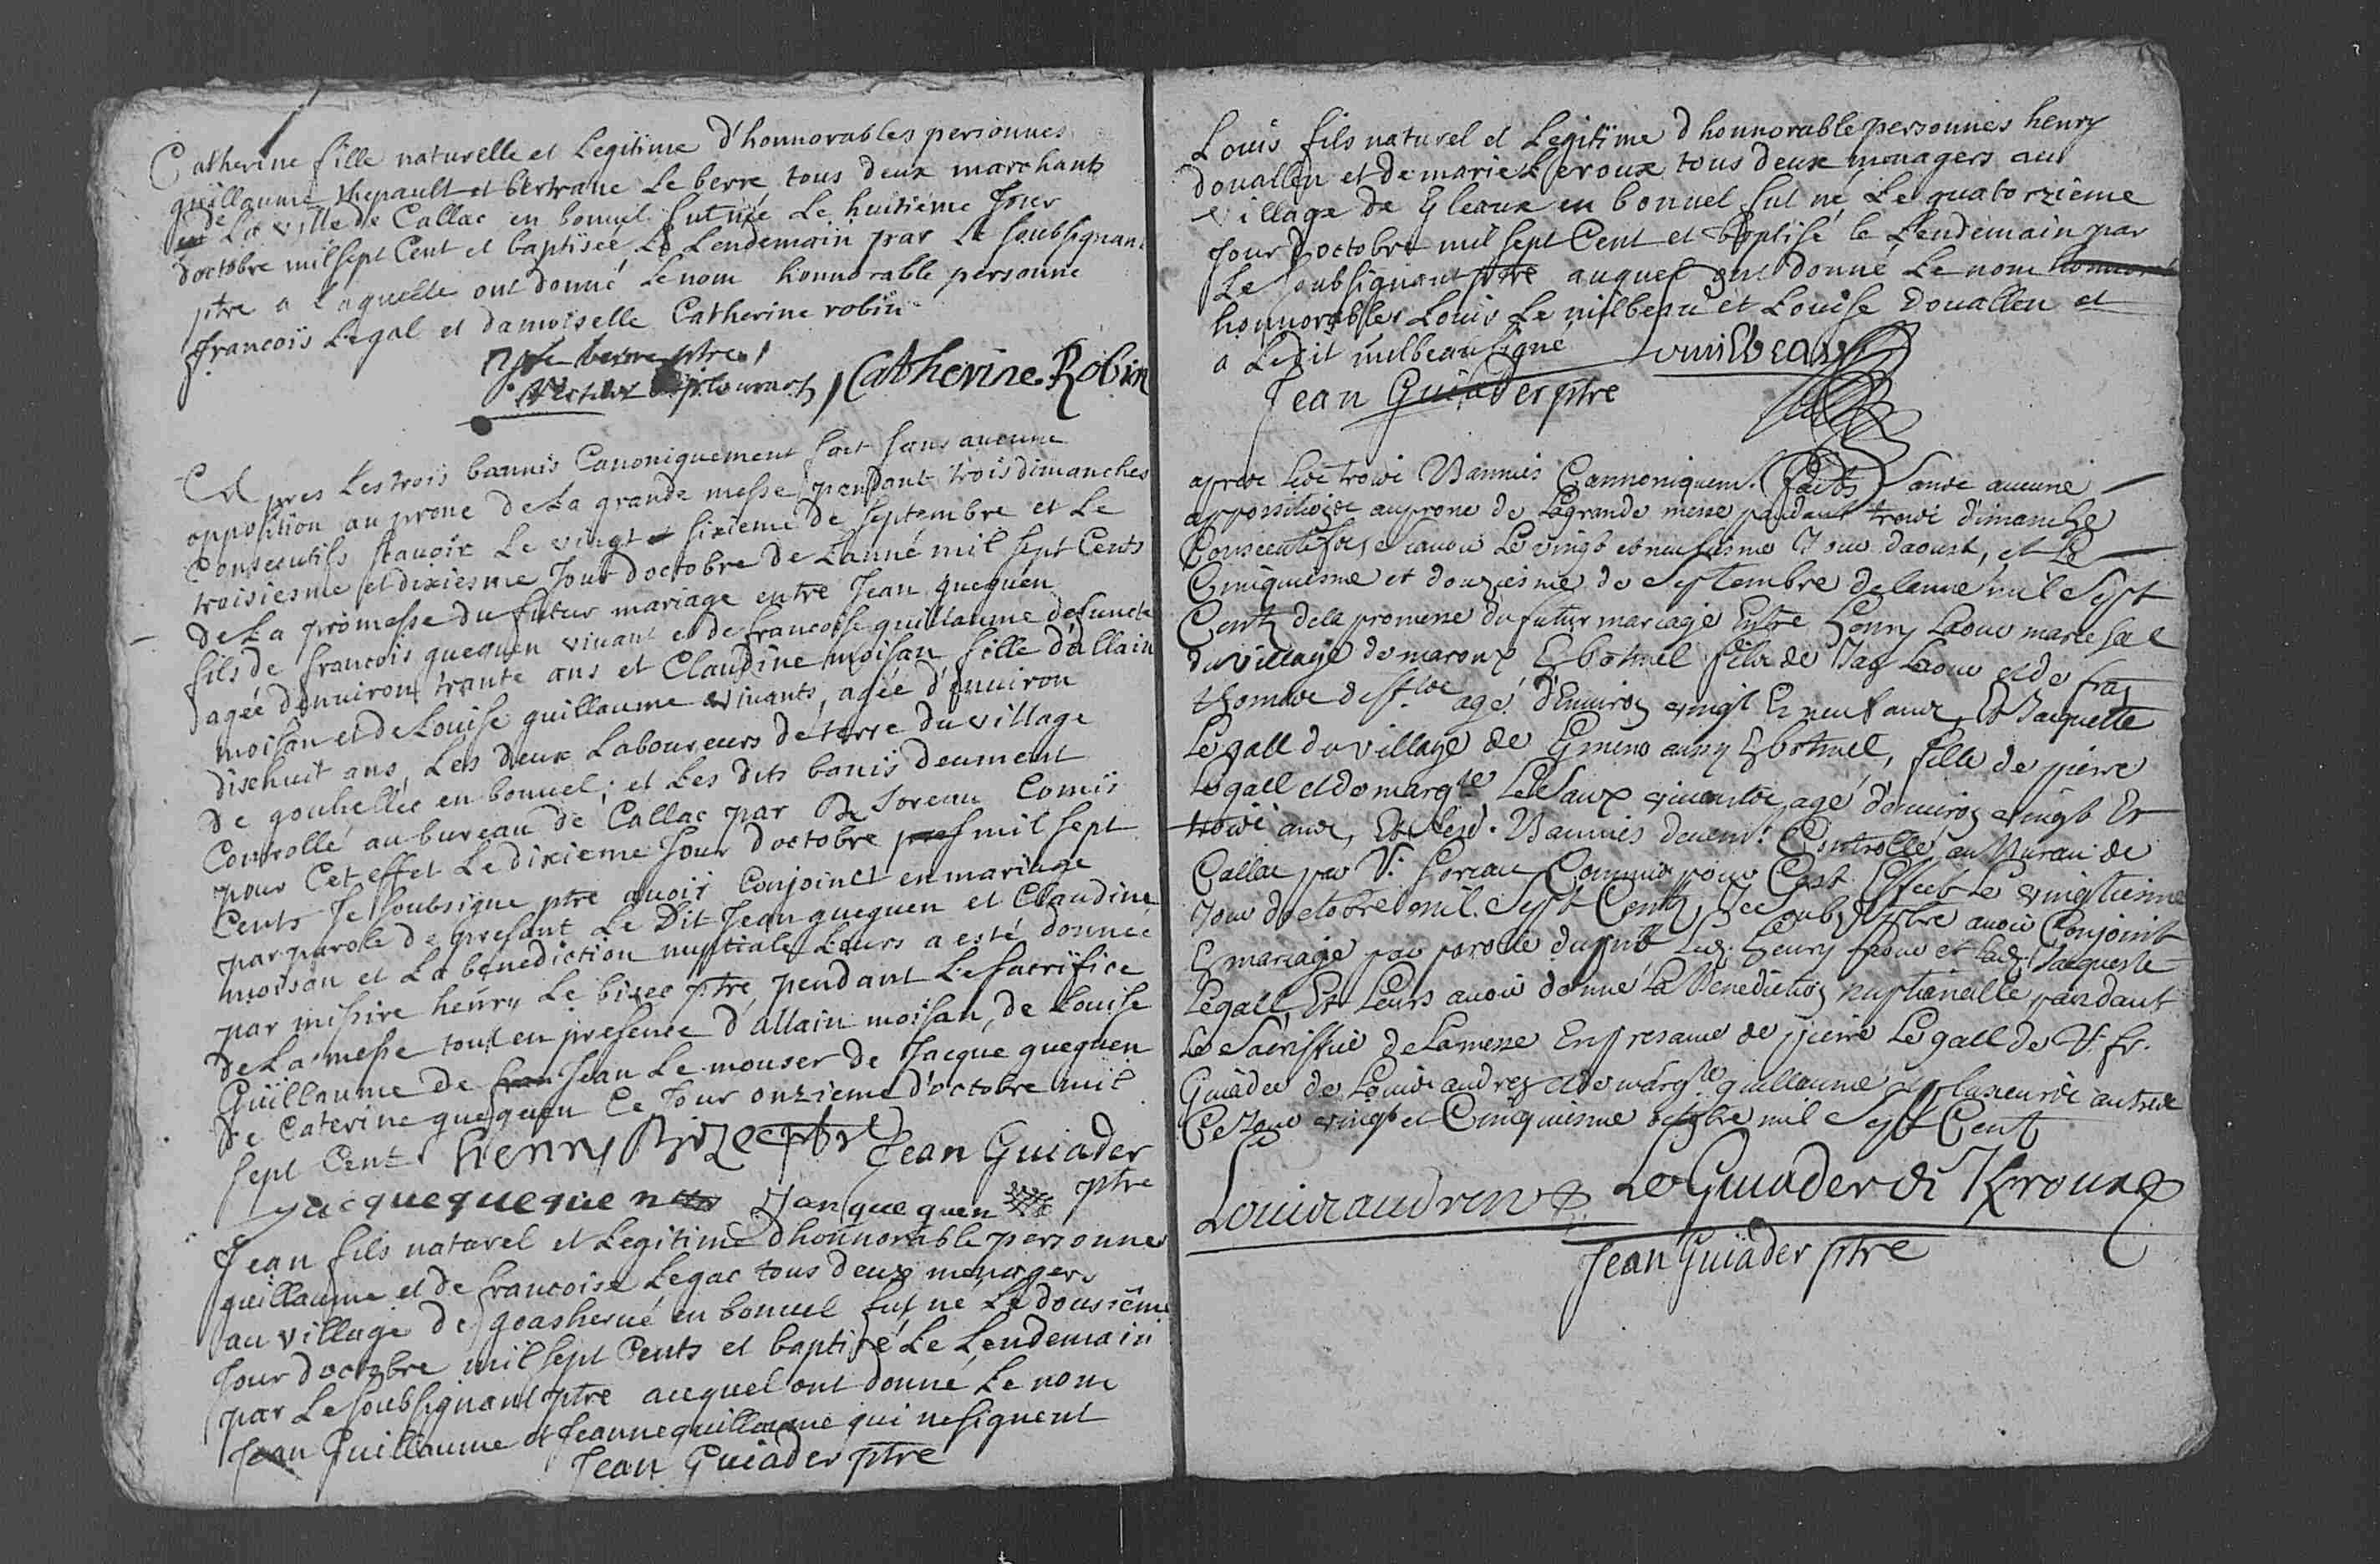 Catherine fille naturelle et Legitime d'honnorables personnes
guillaume thepault et bertrane Le berre tous deux marchants
de La ville de Callac en bonuel fut née Le huitième Jour
d'octobre mil sept Cent et baptisée Le Lendemain par Le soubsignant
ptre a Laquelle ont donné Le nom honnorable personne
francois Legal et damoiselle Catherine robin
Le berre ptre
Catherine Robin
Apres Les trois bannis Canoniquement fait sans aucune
opposition au prone de La grande messe pendant trois dimanches
Consecutifs scauoir Le vingt et sixieme de septembre et Le
troisiesme et dixiesme Jour d'octobre de L'anné mil sept Cents
de La promesse du futur mariage entre Jean queguen
fils de francois queguen viuant et de francoise guillaume defuncte
agée d'enuiron trante ans et Claudine moisan fille d'allain
moisan et de Louise guillaume viuants, agée d'enuiron
dischuit ans, Les deux Laboureurs de terre du village
de gouhellec en bonuel; et Les dits banis deument
Controllé au bureau de Callac par Soreau Comis
pour Cet effet Le dixieme Jour d'octobre mil sept
Cents Je soubsigne ptre auoir Conjoinct en mariage
par parole de presant Le Dit Jean queguen et Claudine
moisan et La benediction nuptiale Leurs a esté donnée
par missire henry Le bizec ptre pendant Le sacrifice
de La messe tout en presence d'allain moisan, de Louise
Guillaume de Jean Le mouser de Jacque queguen
de Caterine queguen Ce Jour onzieme d'octobre mil
sept Cent henry Bizec ptre Jean Guiader
ptre
Jacque queguen Jan queguen
Jean fils naturel et Legitime d'honnorable personnes
guillaume et de francoise Legac tous deux menagers
au village de goasherué en bonuel fut né Le dousième
Jour d'octobre mil sept Cents et baptisé Le Lendemain
par Le soubsignant ptre auquel ont donné Le nom
Jean Guillaume et Jeanne guillaume qui ne signent
Jean Guiader ptre
Louis fils naturel et Legitime d honnorable personnes henry
douallen et de marie Le roux tous deux menagers au
village de Gleaux en bonuel fut né Le quatorzième
Jour d'octobre mil sept Cent et baptisé le Lendemain par
Le soubsignant ptre auquel ont donné Le nom
honnorables Louis Le milbeau et Louise douallen et
a Ledit milbeau signé
Jean Guiader ptre
apres Les trois Bannies Cannoniquem.t faits sans aucune
oppossition au prone de La grande messe pandant trois dimanche
Consecutifs scauoir Le vingt et neufuisme Jour d'aoust, et Le
Cinquiesme et douziesme de Septembre de lanne mil Sept
Centz de la promesse du futur mariage Entre henry Laour mareschal
du village de maroux En botmel fils de Jac Laour et de fra
thomas agé d'Enuiron vingt Et neuf ans, Et Jacquette
Le gall du village de aussy En botmel, fille de pierre
Le gall et de marg.te Le Saux viuantes, agé d'enuiron vingt Et
trois ans, Et Bannies deuem.t Controllé au Bureau de
Callac par Soreau Commis pour Cest Effect Le vingtiesme
Jour d'octobre mil Sept Centz, Je ptre auoir Conjoint
En mariage par parolle du henry Laour et Jacquette
Legall, Et Leurs auoir donné La Benediction nuptialle pandant
Le Sacriffice de La messe En presance de pierre Le gall de
Guiader de Louis andren et de marg.te guillaume et plusieurs autres
Ce Jour vingt et Cinquiesme octobre mil Sept Cent
Louis audren Le Guiader de Kroux
Jean Guiader ptre